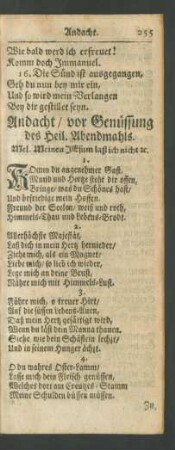 Andacht. 255
Wie bald werd ich erfreuet!
Komm doch Immanuel.
16. Die Sünd ist ausgegangen,
Geh du nun bey mir ein,
Und so wird mein Verlangen
Bey dir gestillet seyn.
Andacht / vor Genüssung
des Heil. Abendmahls.
Mel. Meinen JEsum laß ich nicht ꝛc.
1.
KOmm du angenehmer Gast,
Mund und Hertze steht dir offen,
Bringe, was du Schönes hast,
Und befriedige mein Hoffen.
Freund der Seelen, weiß und roth,
Himmels-Thau und Lebens-Brodt.
2.
Allerhöchste Majestät,
Laß dich in mein Hertz hernieder,
Ziehe mich, als ein Magnet,
Liebe mich, so lieb ich wieder,
Lege mich an deine Brust,
Nähre mich mit Himmels-Lust.
3.
Führe mich, o treuer Hirt,
Auf die süssen Lebens-Auen,
Daß mein Hertz gesättigt wird,
Wenn du läst dein Manna thauen.
Siehe wie dein Schäflein lechzt,
Und in seinem Hunger ächzt.
4.
O du wahres Oster-Lamm,
Lasse mich dein Fleisch genüssen,
Welches dort am Creutzes-Stamm
Meine Schulden büssen müssen.